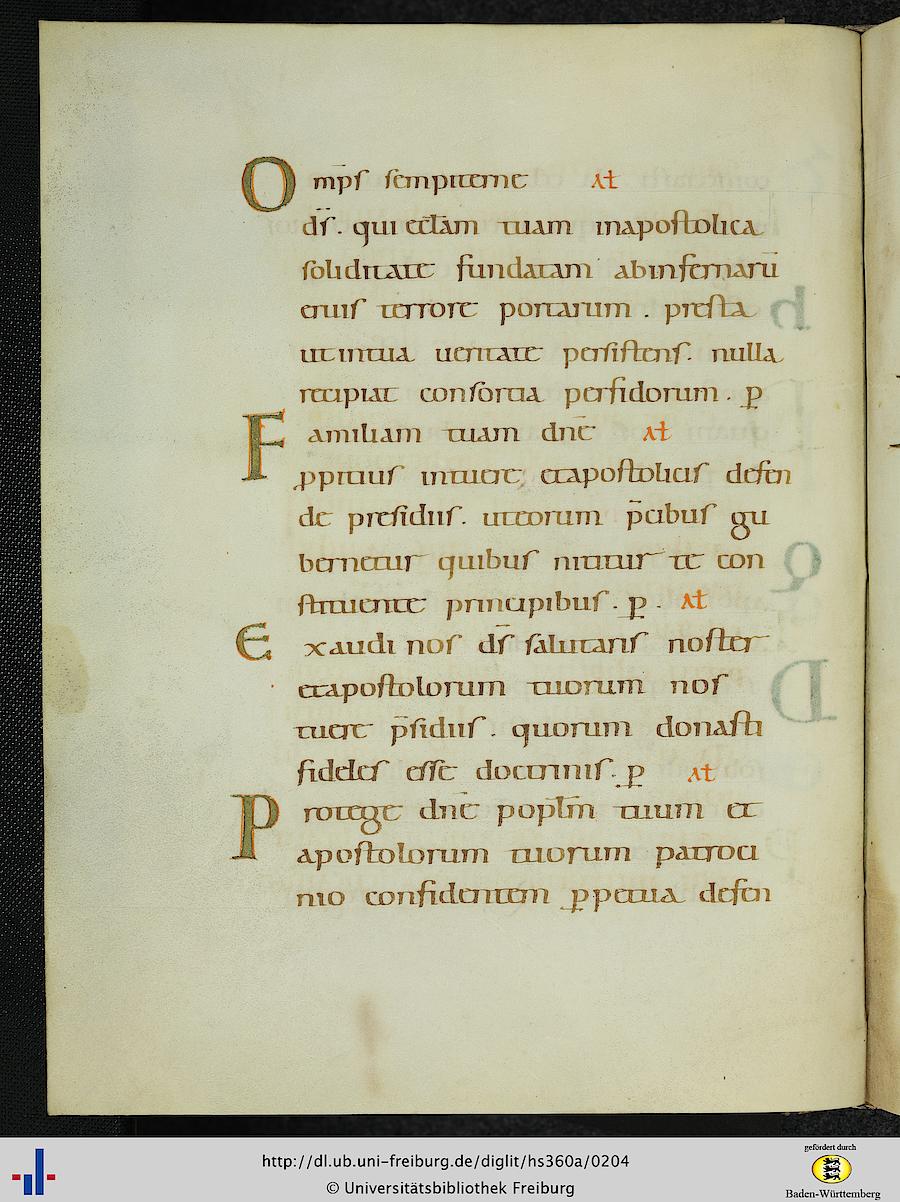 Omp̄s sempiterne at
d̄s. qui eccl̄am tuam inapostolica
soliditate fundatam abinfernarū
eruis terrore portarum . presta
utintua ueritate persistens. nulla
recipiat consortia perfidorum . ꝑ
Familiam tuam dn̄e at
ꝓpitius intuere etapostolicis defen
de presidiis. uteorum p̄cibus gu
bernetur quibus nititur te con
stituente principibus . ꝑ . at
Exaudi nos d̄s salutaris noster
etapostolorum tuorum nos
tuere p̄sidiis . quorum donasti
fideles esse doctrinis. ꝑ at
Protege dn̄e popl̄m tuum et
apostolorum tuorum patroci
nio confidentem ꝑpetua defen
http://dl.ub.uni-freiburg.de/diglit/hs360a/0204
© Universitätsbibliothek Freiburg
gefördert durch
Baden-Württemberg